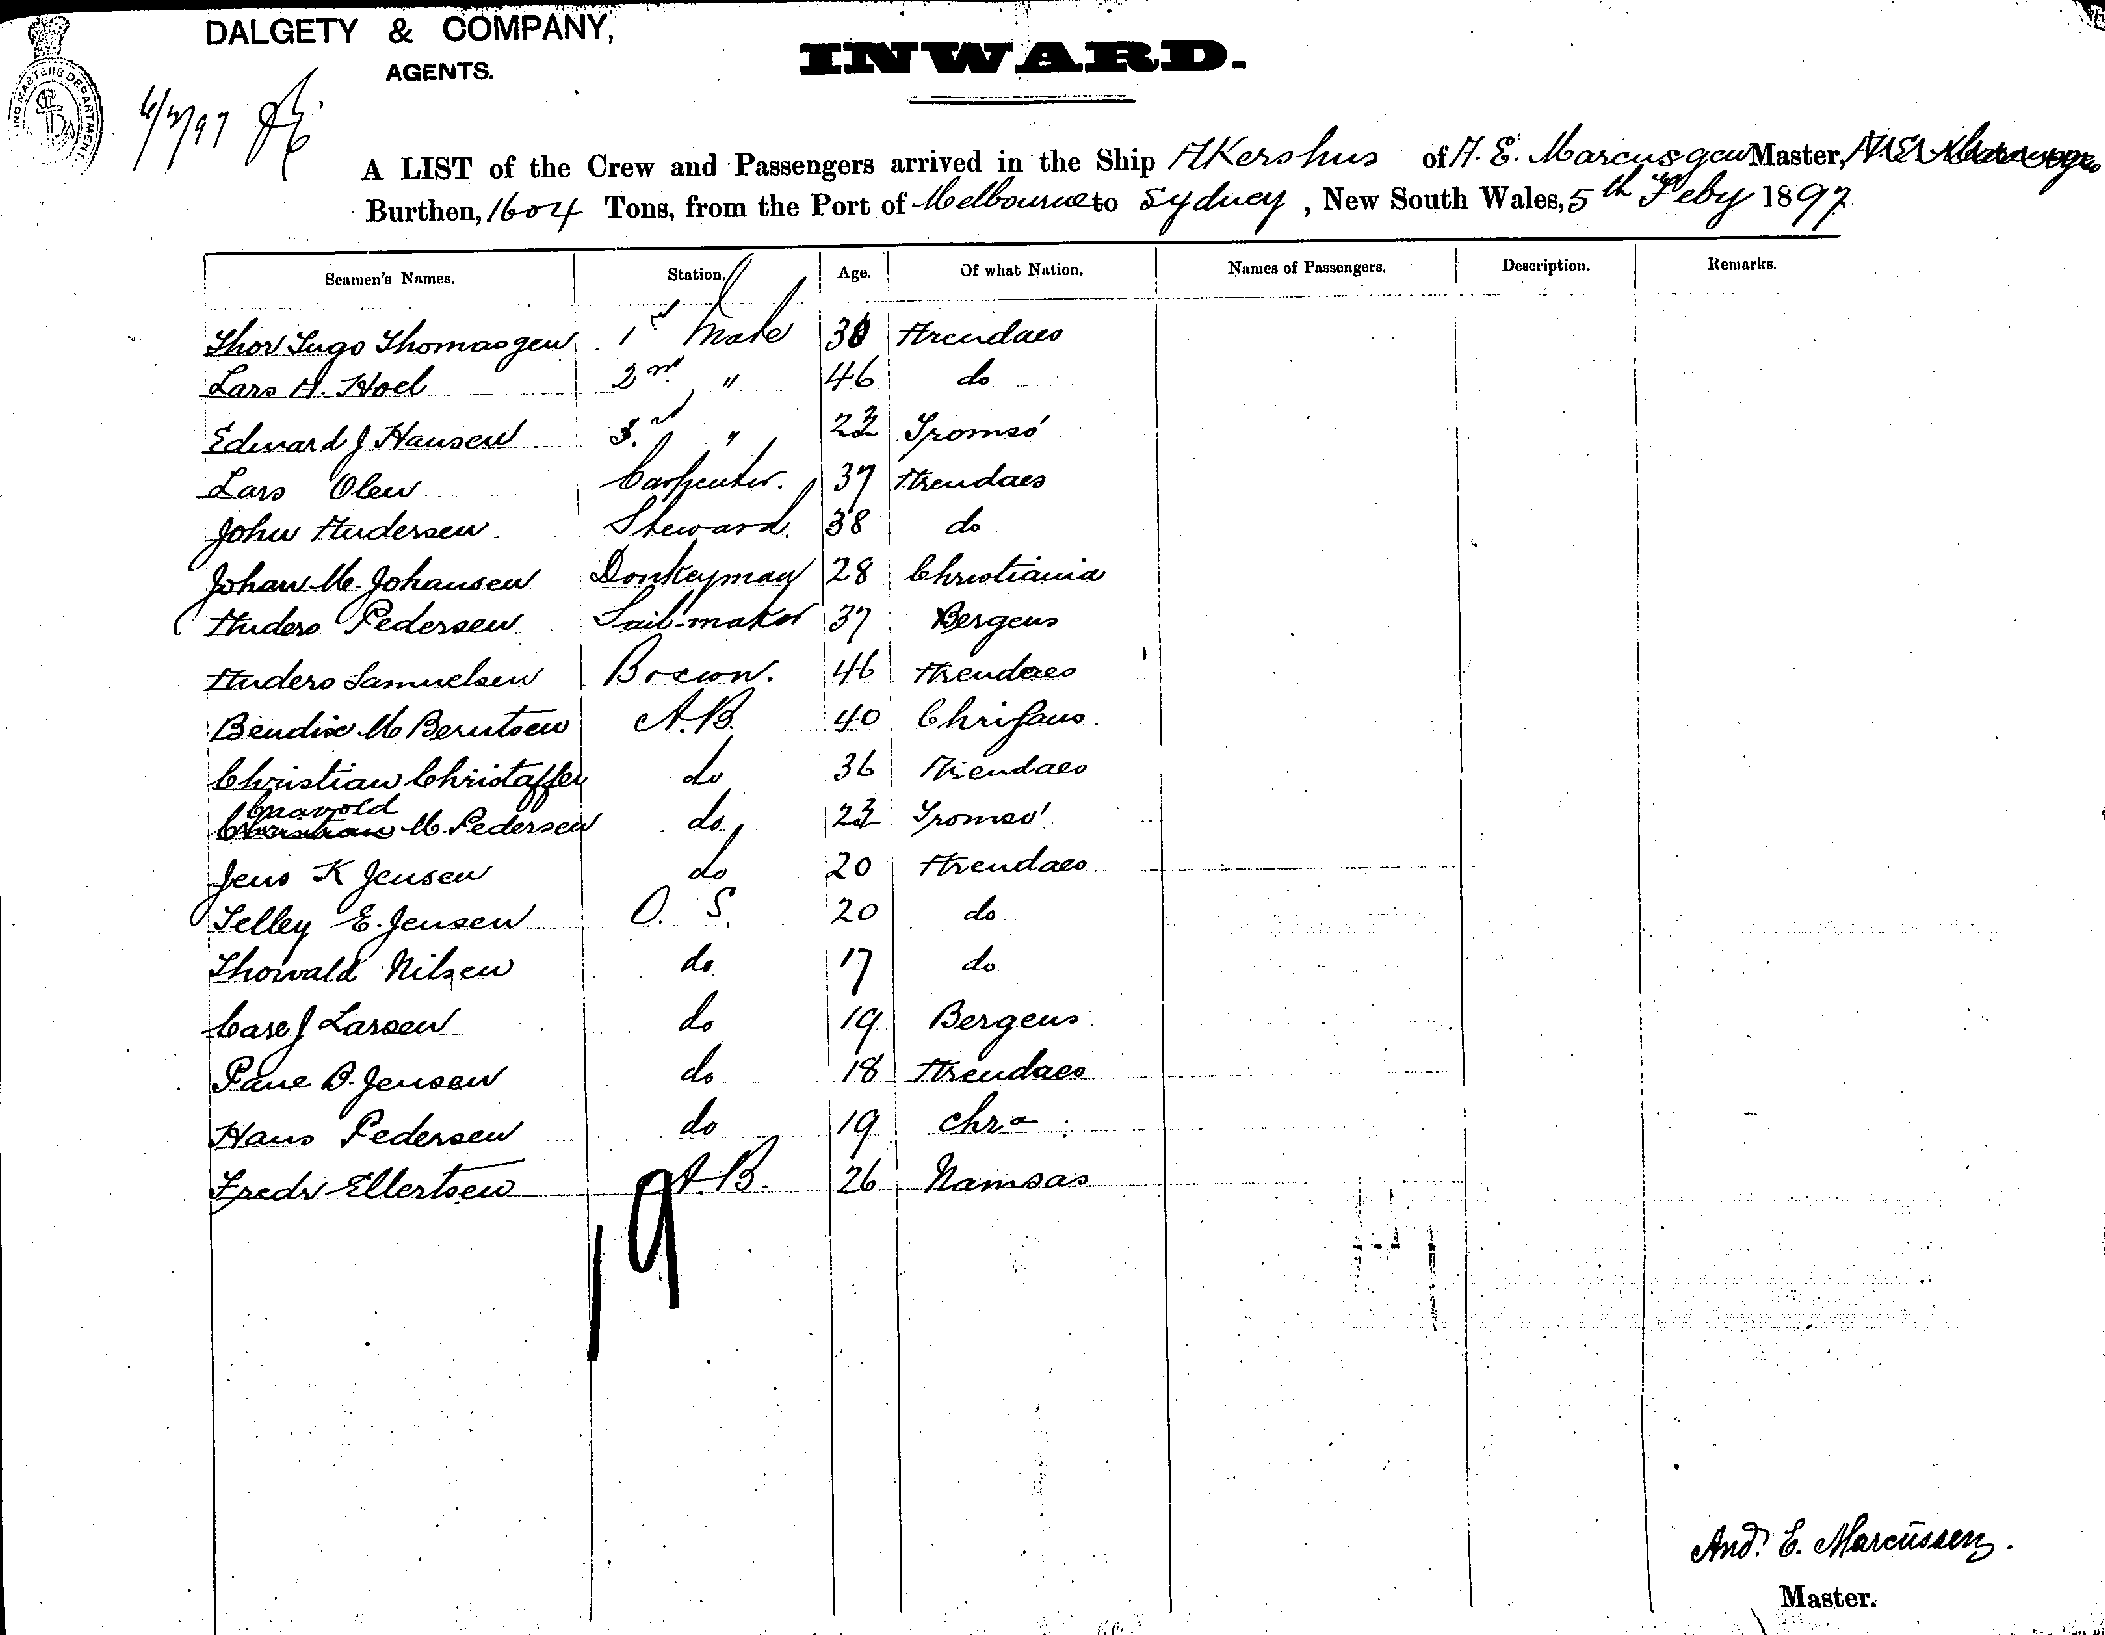 DALGETY & COMPANY,
AGENTS.
INWARD.
6/2/97
A LIST of the Crew and Passengers arrived in the Ship AKershus of A. E. Marcusgen Master,
Burthen, 1604 Tons, from the Port of Melbourne to Sydney, New South Wales, 5th Feby 1897
Seamen's Names. Station. Age. Of what Nation. Names of Passengers. Description. Remarks.
Thor Tugo Thomasgen 1st Mate 30 Arendaes
Lars A. Hoel 2nd " 46 do
Edward J Hansen 3rd " 22 Tromsó
Lars Olen Carpenter. 37 Arendaes
John Andersen Steward. 38 do
Johan M. Johansen Donkeyman 28 Christiania
Anders Pedersen Sail-maker 37 Bergens
Anders Samuelsen Boswn. 46 Arendaes
Bendix M Berntsen A.B. 40 Chrisans.
Christian Christaffer do 36 Arendaes
M. Pedersen do 22 Tromsó
Jens K Jensen do 20 Arendaes
Selley E. Jensen O. S. 20 do
Thorvald Nilsen do 17 do
Carl J Larsen do 19 Bergens
Pane B. Jensen do 18 Arendaes
Hans Pedersen do 19 Chra
Fredr Ellertsen A.B. 26 Namsas
19
And. E. Marcussen.
Master.